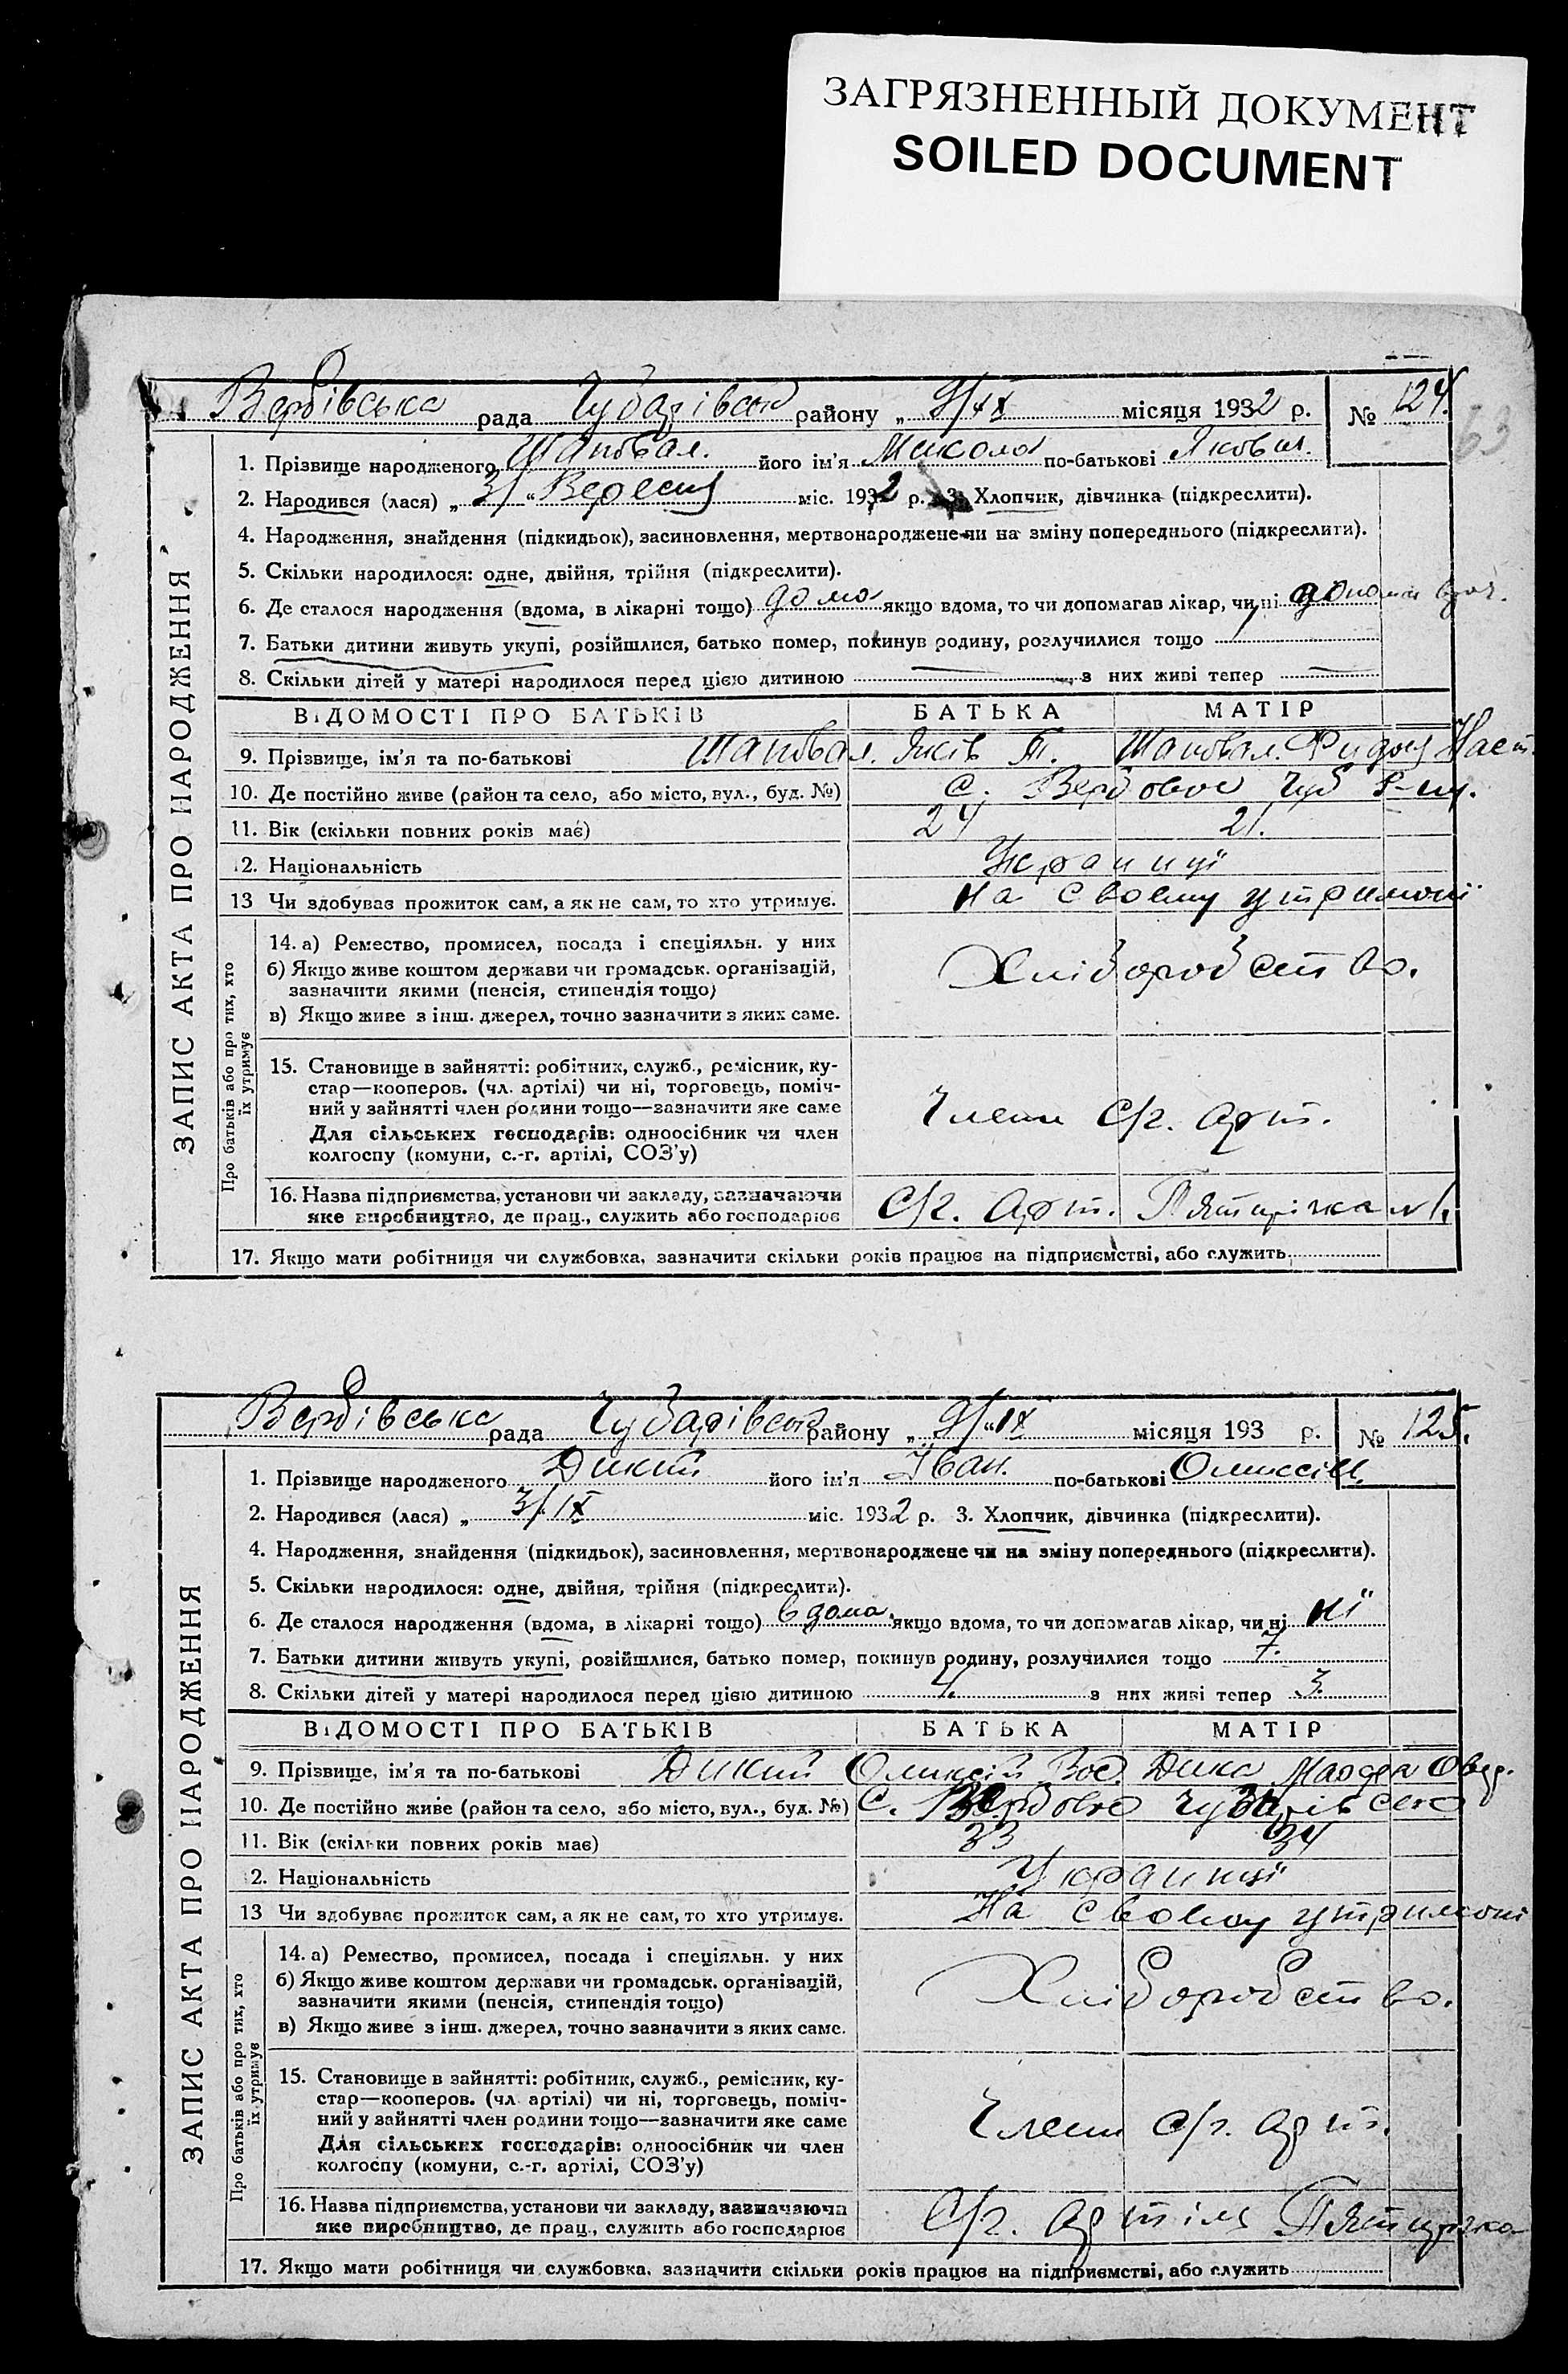 ЗАГРЯЗНЕННЫЙ ДОКУМЕНТ
SOILED DOCUMENT
63
ЗАПИС АКТА ПРО НАРОДЖЕННЯ
Вербівська рада Чубарівськ району „ 9/ІХ місяця 1932 р. № 124.
1. Прізвище народженого Шаповал. його ім'я Микола по-батькові Якович.
2. Народився (лася) „ 3/ “ Вересня міс. 1932 р. 3. Хлопчик, дівчинка (підкреслити).
4. Народження, знайдення (підкидьок), засиновлення, мертвонароджене чи на зміну попереднього (підкреслити).
5. Скільки народилося: одне, двійня, трійня (підкреслити).
6. Де сталося народження (вдома, в лікарні тощо) дома якщо вдома, то чи допомагав лікар, чи ні
7. Батьки дитини живуть укупі, розійшлися, батько помер, покинув родину, розлучилися тощо
8. Скільки дітей у матері народилося перед цією дитиною — з них живі тепер —
ВІДОМОСТІ ПРО БАТЬКІВ БАТЬКА МАТІР
9. Прізвище, ім'я та по-батькові Шаповал. Яків Т. Шаповал.
10. Де постійно живе (район та село, або місто, вул., буд. №) С. Вербовое Чуб Р-ну.
11. Вік (скільки повних років має) 24 21.
12. Національність Українці
13 Чи здобуває прожиток сам, а як не сам, то хто утримує. На своему утримані
Про батьків або про тих, хто їх утримує
14. а) Ремество, промисел, посада і спеціяльн. у них
б) Якщо живе коштом держави чи громадськ. організацій,
зазначити якими (пенсія, стипендія тощо)
в) Якщо живе з інш. джерел, точно зазначити з яких саме.
Хліборобство.
15. Становище в зайнятті: робітник, служб., ремісник, ку-
стар—кооперов. (чл. артілі) чи ні, торговець, поміч-
ний у зайнятті член родини тощо—зазначити яке саме
Для сільських господарів: одноосібник чи член
колгоспу (комуни, с.-г. артілі, СОЗ'у)
Члени С/г. арт.
16. Назва підприємства, установи чи закладу, зазначаючи
яке виробництво, де прац., служить або господарює
С/г. Арт. Пятирічка №1.
17. Якщо мати робітниця чи службовка, зазначити скільки років працює на підприємстві, або служить
ЗАПИС АКТА ПРО НАРОДЖЕННЯ
Вербівська рада Чубарівськ району „ 9/“ІХ місяця 193 р. № 125.
1. Прізвище народженого Дикий його ім'я Іван. по-батькові Олексієв.
2. Народився (лася) „ 3/ІХ міс. 1932 р. 3. Хлопчик, дівчинка (підкреслити).
4. Народження, знайдення (підкидьок), засиновлення, мертвонароджене чи на зміну попереднього (підкреслити).
5. Скільки народилося: одне, двійня, трійня (підкреслити).
6. Де сталося народження (вдома, в лікарні тощо) вдома. якщо вдома, то чи допомагав лікар, чи ні ні
7. Батьки дитини живуть укупі, розійшлися, батько помер, покинув родину, розлучилися тощо 7.
8. Скільки дітей у матері народилося перед цією дитиною 4. з них живі тепер 3
ВІДОМОСТІ ПРО БАТЬКІВ БАТЬКА МАТІР
9. Прізвище, ім'я та по-батькові Дикий Олексій Дика Марфа
10. Де постійно живе (район та село, або місто, вул., буд. №) С. Вербовое
11. Вік (скільки повних років має) 33 34
12. Національність Українці
13 Чи здобуває прожиток сам, а як не сам, то хто утримує. На своему утримані
Про батьків або про тих, хто їх утримує
14. а) Ремество, промисел, посада і спеціяльн. у них
б) Якщо живе коштом держави чи громадськ. організацій,
зазначити якими (пенсія, стипендія тощо)
в) Якщо живе з інш. джерел, точно зазначити з яких саме.
Хліборобство.
15. Становище в зайнятті: робітник, служб., ремісник, ку-
стар—кооперов. (чл. артілі) чи ні, торговець, поміч-
ний у зайнятті член родини тощо—зазначити яке саме
Для сільських господарів: одноосібник чи член
колгоспу (комуни, с.-г. артілі, СОЗ'у)
Члени с/г. арт.
16. Назва підприємства, установи чи закладу, зазначаючи
яке виробництво, де прац., служить або господарює
С/г. артіль Пятирічка
17. Якщо мати робітниця чи службовка, зазначити скільки років працює на підприємстві, або служить